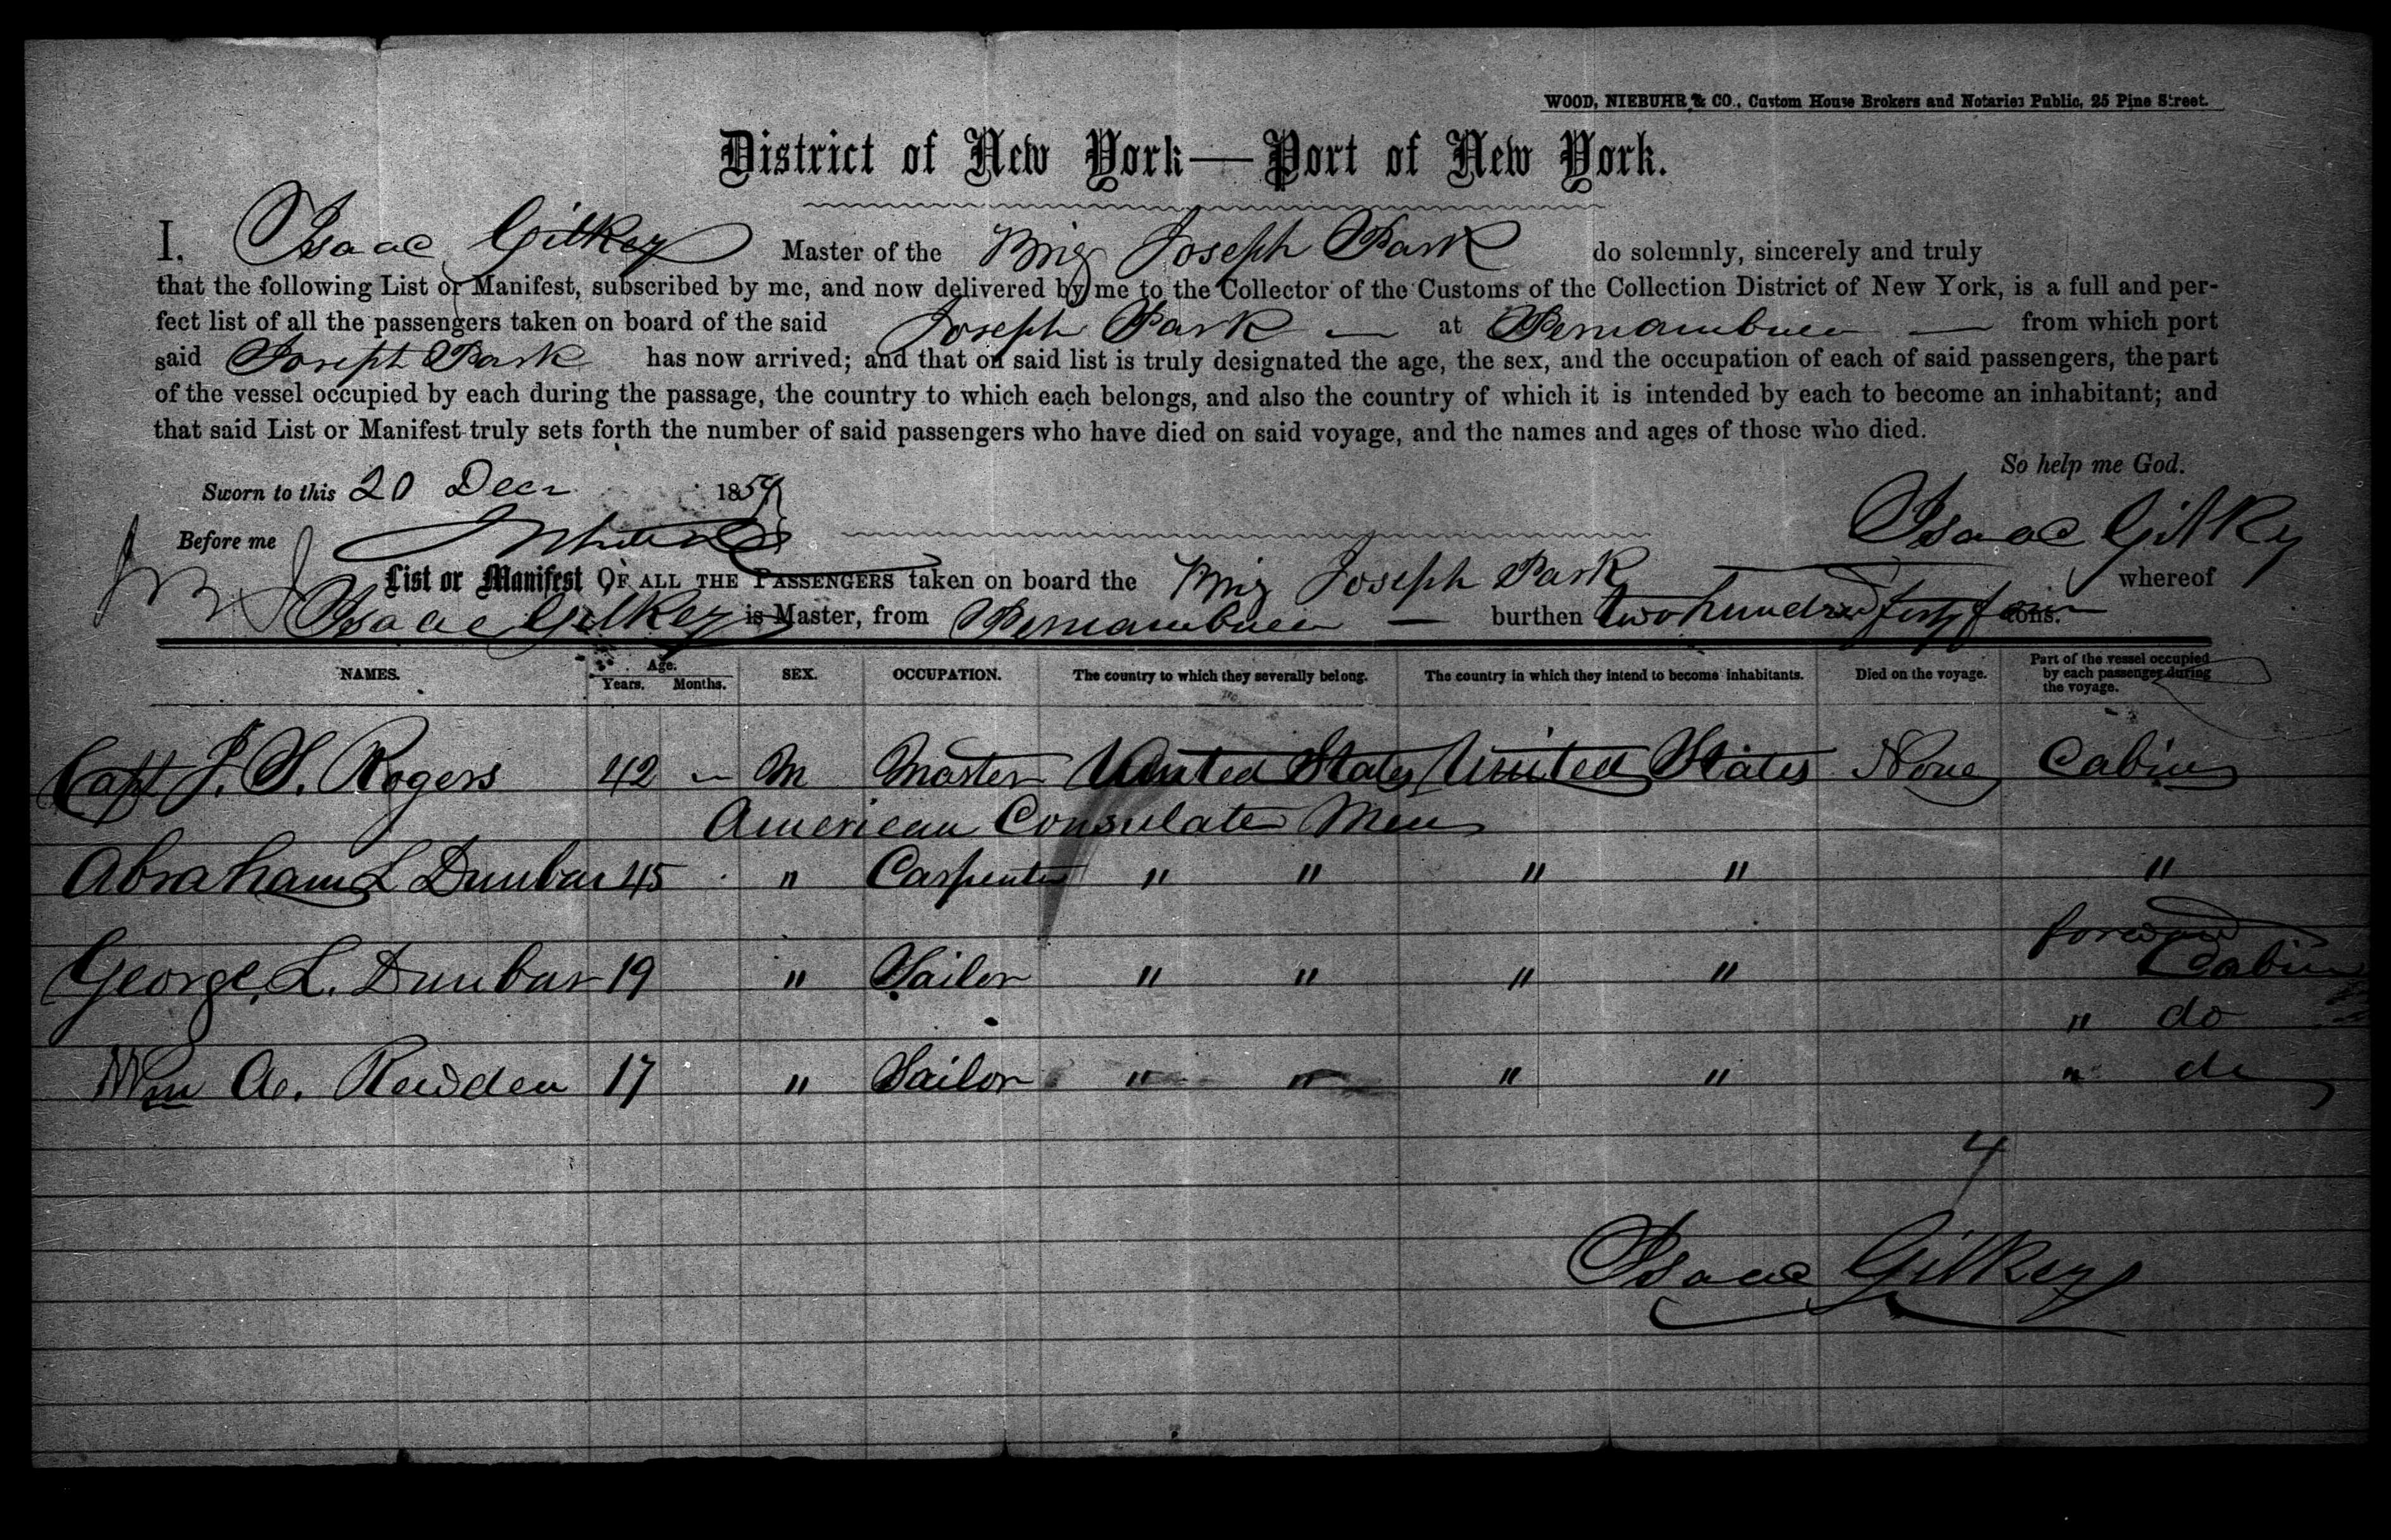 WOOD, NIEBUHR & CO., Custom House Brokers and Notaries Public, 25 Pine Street.
District of New York—Port of New York.
I, Isaac Gilkey Master of the Brig Joseph Park do solemnly, sincerely and truly
that the following List or Manifest, subscribed by me, and now delivered by me to the Collector of the Customs of the Collection District of New York, is a full and per-
fect list of all the passengers taken on board of the said Joseph Park — at Pernambuco — from which port
said Joseph Park has now arrived; and that on said list is truly designated the age, the sex, and the occupation of each of said passengers, the part
of the vessel occupied by each during the passage, the country to which each belongs, and also the country of which it is intended by each to become an inhabitant; and
that said List or Manifest truly sets forth the number of said passengers who have died on said voyage, and the names and ages of those who died.
So help me God.
Sworn to this 20 Decr 1859
Isaac Gilkey
Before me
List or Manifest OF ALL THE PASSENGERS taken on board the Brig Joseph Park whereof
Isaac Gilkey is Master, from Pernambuco — burthen two hundred forty four tons.
NAMES. Age. Years. Months. SEX. OCCUPATION. The country to which they severally belong. The country in which they intend to become inhabitants. Died on the voyage. Part of the vessel occupied by each passenger during the voyage.
Capt J. S. Rogers 42 — M Master United States United States None Cabin
American Consulate Men
Abraham L Dunbar 45 " Carpenter " " " " "
forward
George L. Dunbar 19 " Sailor " " " " Cabin
" do
Wm A. Rewden 17 " Sailor " " " " " do
4
Isaac Gilkey